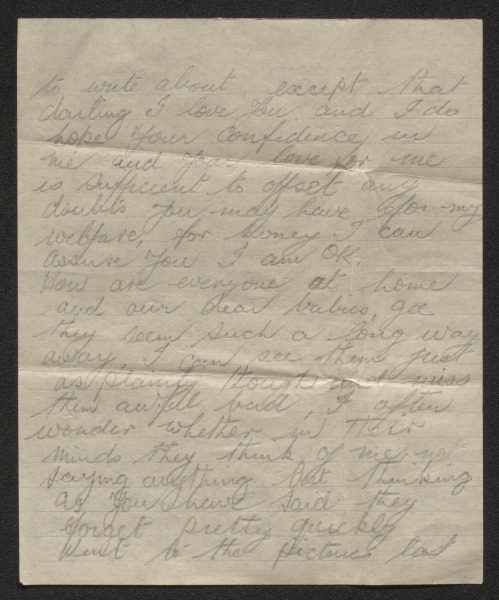 to write about, except that
darling I love you and I do
hope your confidence in
me and your love for me
is sufficient to offset any
doubts you may have for my
welfare, for honey I can
assure you I am OK.
How are everyone at home
and our dear babies, gee
they seem such a long way
away I can see them just
as plainly though and miss
them awful bad, I often
wonder whether in their
minds they think of me, not
saying anything but thinking
as you have said they
forget pretty quickly
Went to the pictures last